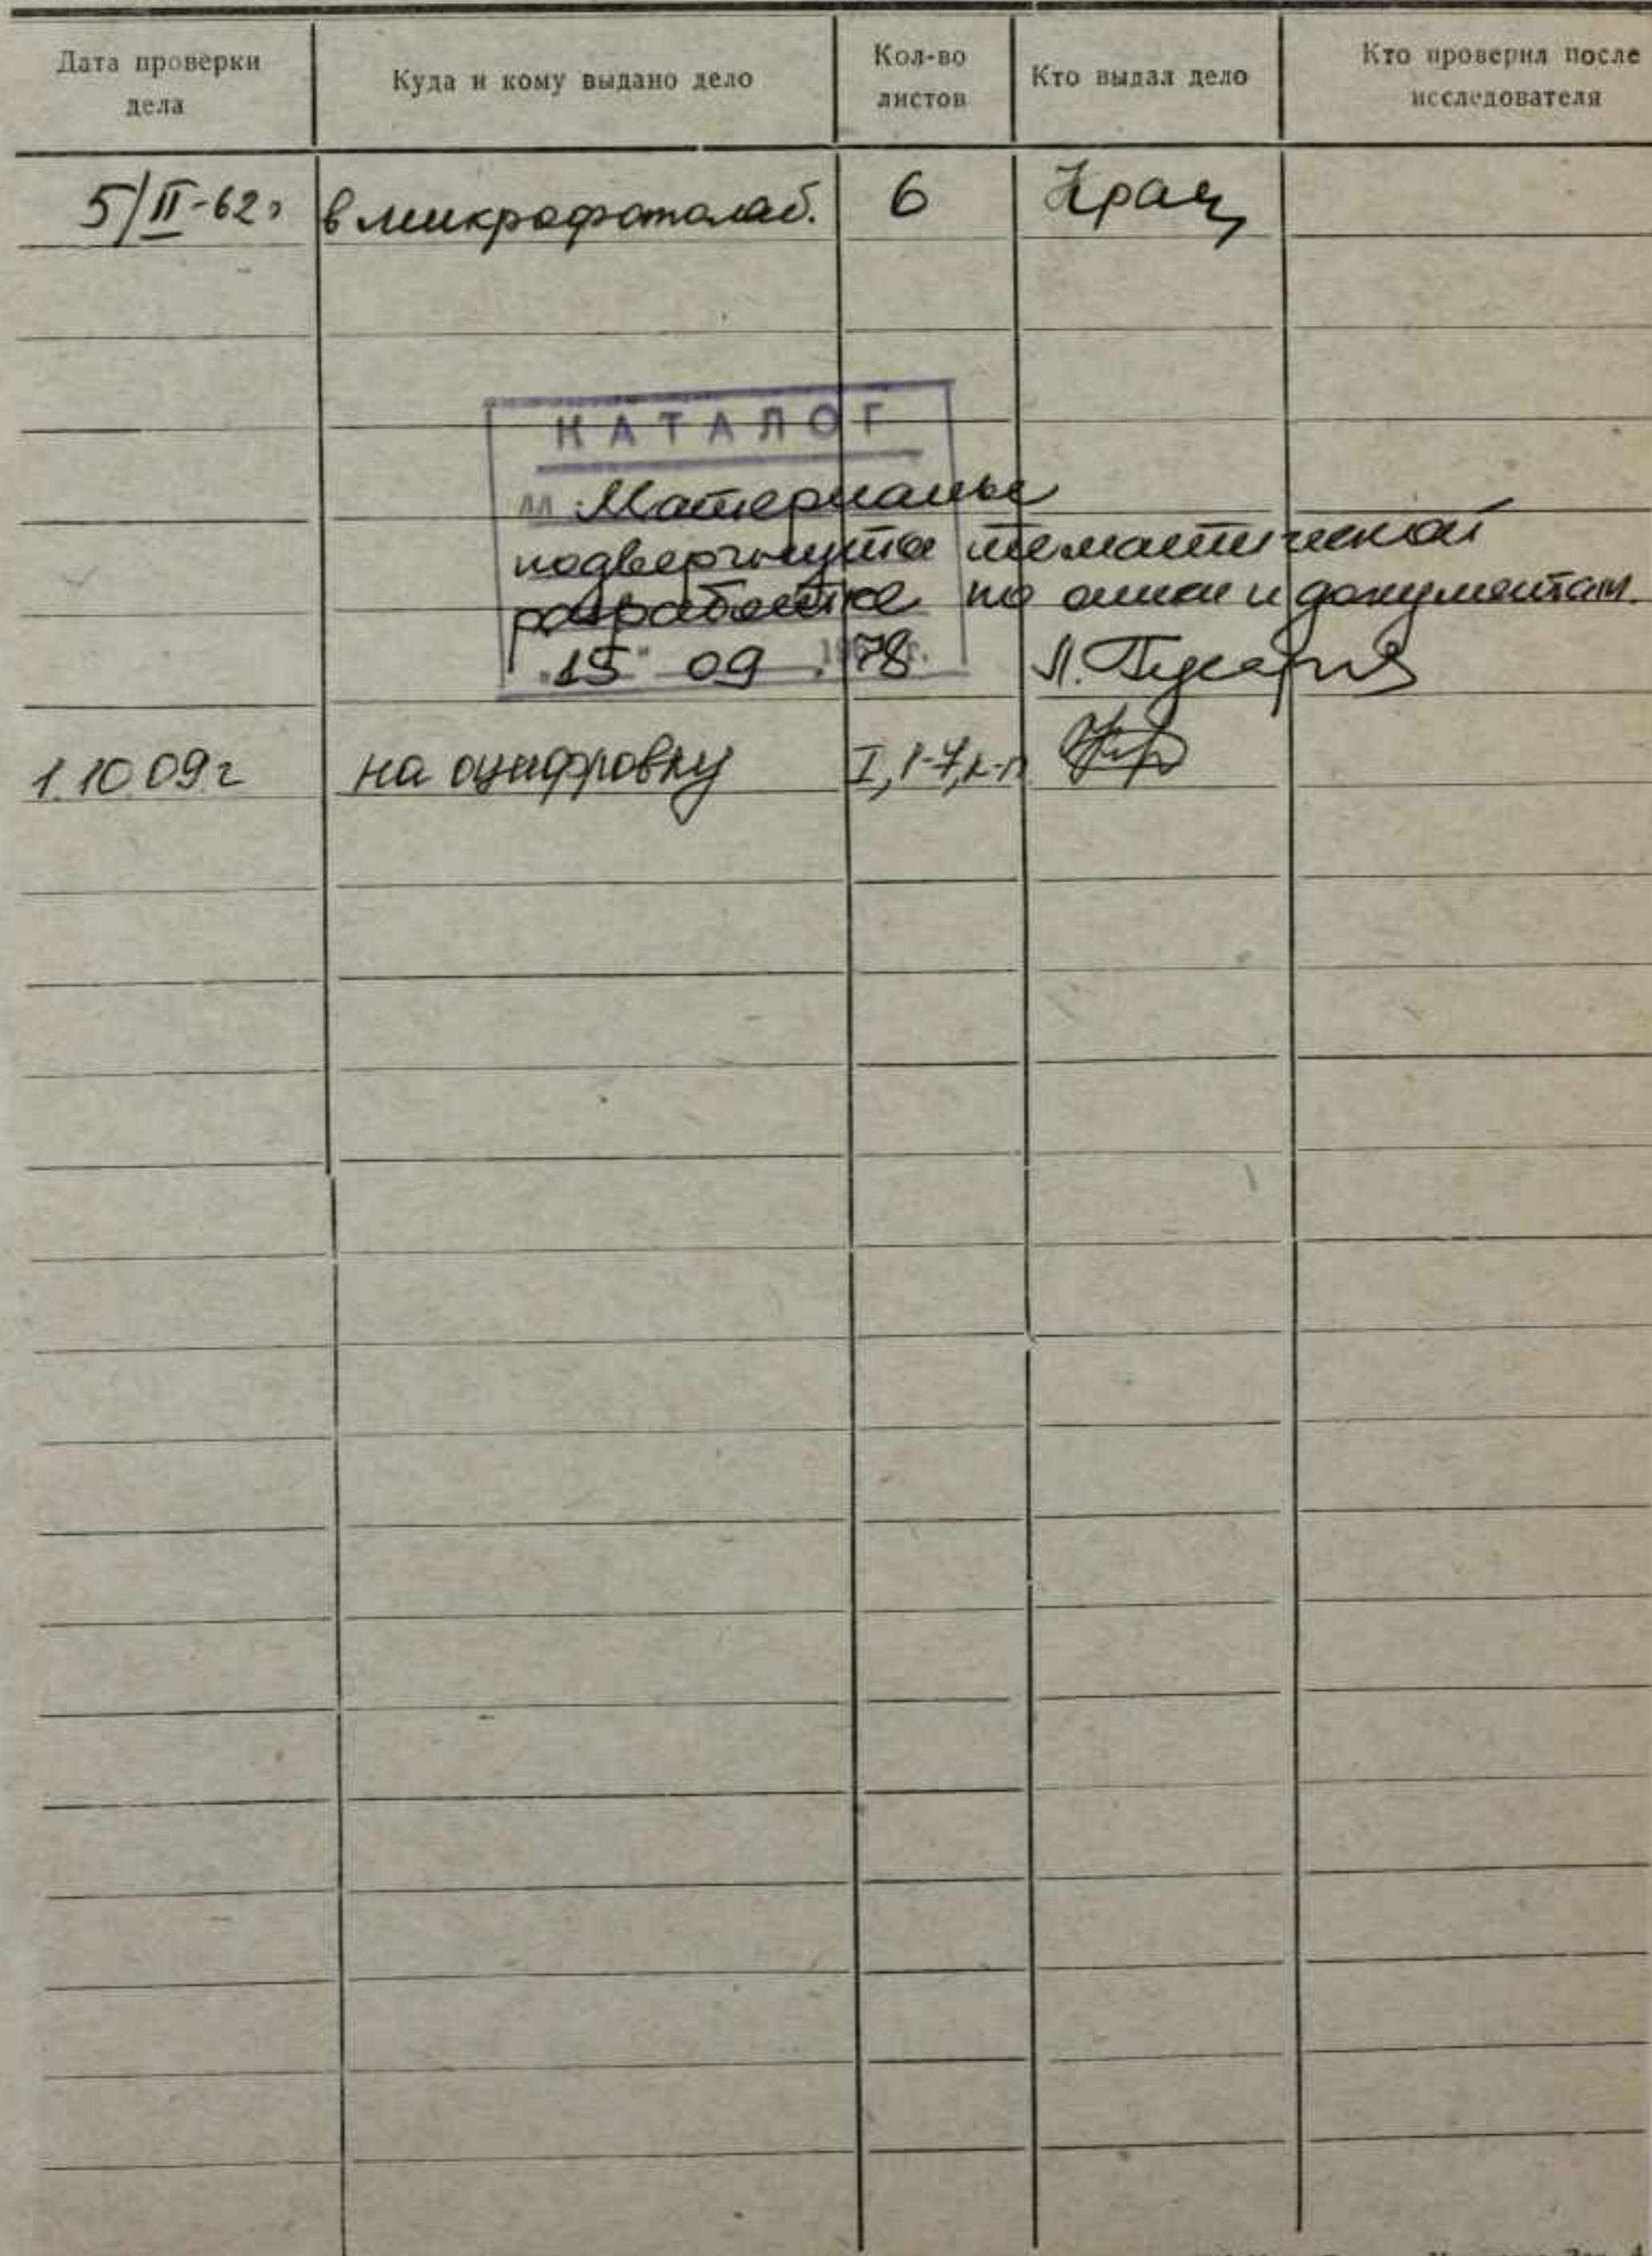 Дата проверки дела
Куда и кому выдано дело
Кол-во листов
Кто выдал дело
Кто проверил после исследователя
5/II-62г в микрофотолаб. 6 Крац
КАТАЛОГ
Материалы
подвергнуты тематической
разработке по описи и документам.
15 09 78 Л.
1.10.09г на оцифровку I, 1-7,